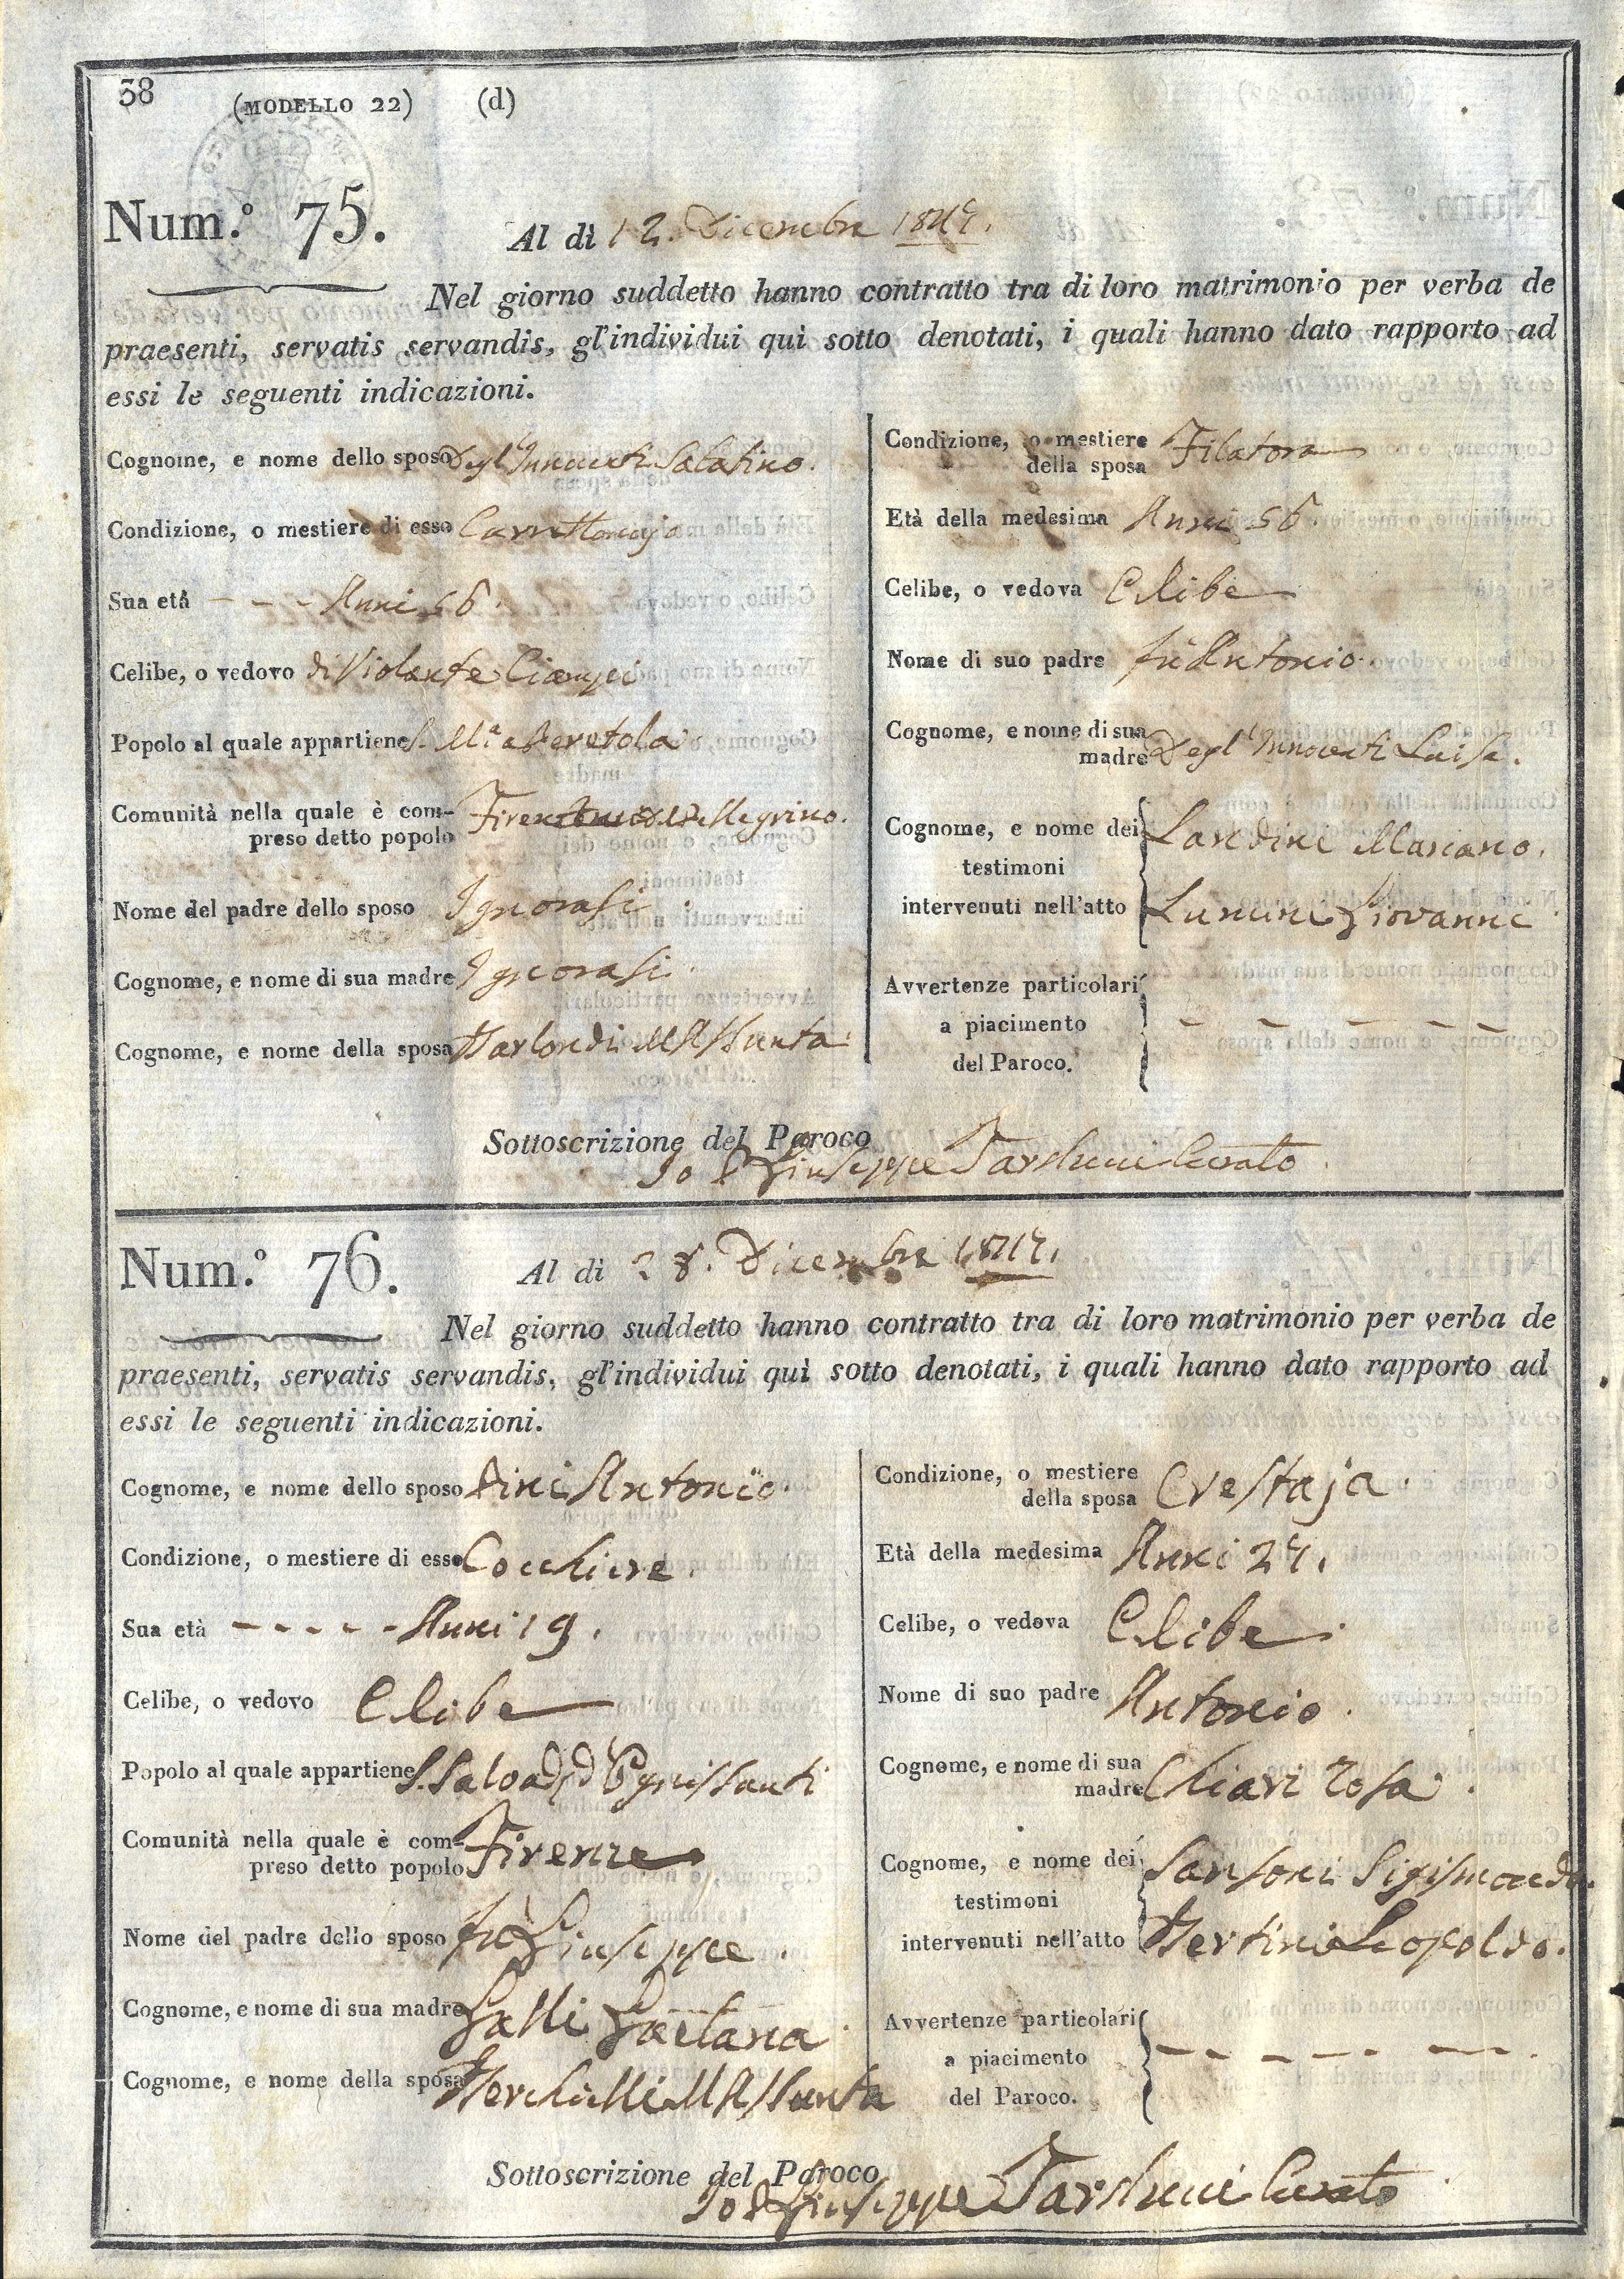 38 (MODELLO 22) (d)
Num.º 75. Al dì 12. Dicembre
Nel giorno suddetto hanno contratto tra di loro matrimonio per verba de
praesenti, servatis servandis, gl'individui quì sotto denotati, i quali hanno dato rapporto ad
essi le seguenti indicazioni.
Cognome, e nome dello sposo Degl'Innocenti Salatino.
Condizione, o mestiere di esso Carrettonajo
Sua età - - - Anni 56.
Celibe, o vedovo di Violante Ciampi
Popolo al quale appartiene S. Mª a Peretola
Comunità nella quale è com-
preso detto popolo Pellegrino.
Nome del padre dello sposo Ignorasi.
Cognome, e nome di sua madre Ignorasi.
Cognome, e nome della sposa
Condizione, o mestiere
della sposa Filatora
Età della medesima Anni 56
Celibe, o vedova Celibe
Nome di suo padre fù Antonio.
Cognome, e nome di sua
madre Degl'Innocenti Luisa.
Cognome, e nome dei Landini Mariano.
testimoni
intervenuti nell'atto Giovanni
Avvertenze particolari
a piacimento - - - - -
del Paroco.
Sottoscrizione del Paroco
Io P Giuseppe Tarchiani Curato
Num.º 76. Al dì 28. Dicembre
Nel giorno suddetto hanno contratto tra di loro matrimonio per verba de
praesenti, servatis servandis, gl'individui quì sotto denotati, i quali hanno dato rapporto ad
essi le seguenti indicazioni.
Cognome, e nome dello sposo Dini Antonio.
Condizione, o mestiere di esso Cocchiere.
Sua età - - - - - Anni 19.
Celibe, o vedovo Celibe
Popolo al quale appartiene S. Salvad. d'Ognissanti
Comunità nella quale è com-
preso detto popolo Firenze
Nome del padre dello sposo fù Giuseppe.
Cognome, e nome di sua madre Galli Gaetana.
Cognome, e nome della sposa Berchielli M Assunta
Condizione, o mestiere
della sposa Crestaja.
Età della medesima Anni 24.
Celibe, o vedova Celibe.
Nome di suo padre Antonio.
Cognome, e nome di sua
madre Chiari Rosa.
Cognome, e nome dei Sansoni Sigismondo.
testimoni
intervenuti nell'atto Bertini Leopoldo.
Avvertenze particolari
a piacimento - - - - -
del Paroco.
Sottoscrizione del Paroco
Io P Giuseppe Tarchiani Curato